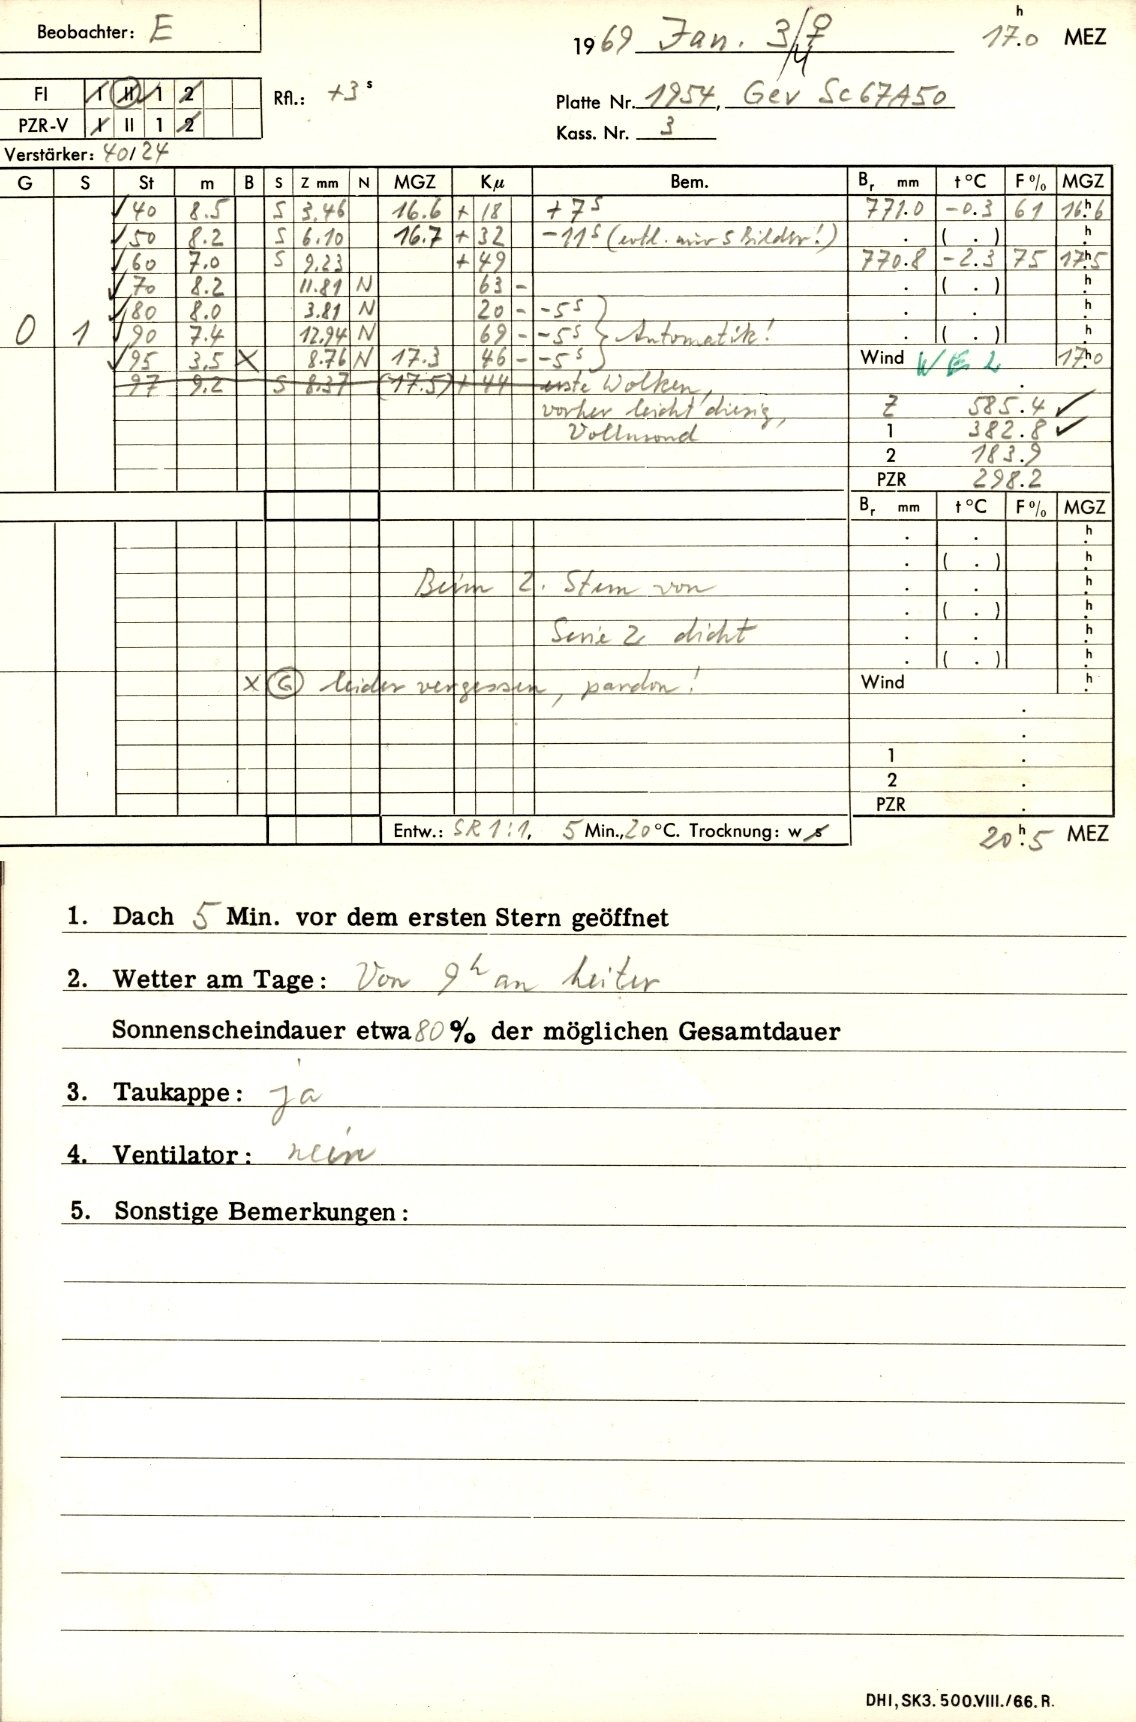 Beobachter: E
1969 Jan. 3/4 ♀ 17.0 h MEZ
FI I II 1 2 Rfl.: +3 s
Platte Nr. 1954, Gev Sc67A50
PZR-V I II 1 2
Kass. Nr. 3
Verstärker: 40/24
G S St m B S Z mm N MGZ Kμ Bem. Br mm t °C F % MGZ
√ 40 8.5 S 3.46 16.6 + 18 +7 s 771.0 -0.3 61 16.h6
√ 50 8.2 S 6.10 16.7 + 32 -11 s (evtl. nur 5 Bilder!) . ( . ) h
√ 60 7.0 S 9.23 + 49 770.8 -2.3 75 17.h5
√ 70 8.2 11.81 N 63 - . ( . ) h
√ 80 8.0 3.81 N 20 - -5 s . . h
0 1 √ 90 7.4 12.94 N 69 - -5 s } Automatik! . ( . ) h
√ 95 3.5 X 8.76 N 17.3 46 - -5 s Wind W 2 17.h0
97 9.2 S 8.37 (17.5) + 44 erste Wolken, .
vorher leicht diesig, Z 585.4 √
Vollmond 1 382.8 √
2 183.9
PZR 298.2
Br mm t °C F % MGZ
. . h
. ( . ) h
Beim 2. Stern von . . h
. ( . ) h
Serie 2 dicht . . h
. ( . ) h
X G leider vergessen, pardon! Wind h
.
.
1 .
2 .
PZR .
Entw.: SR 1:1, 5 Min., 20 °C. Trocknung: w s
20.h5 MEZ
1. Dach 5 Min. vor dem ersten Stern geöffnet
2. Wetter am Tage: Von 9 h an heiter
Sonnenscheindauer etwa 80 % der möglichen Gesamtdauer
3. Taukappe: ja
4. Ventilator: nein
5. Sonstige Bemerkungen:
DHI, SK3. 500.VIII./66. R.